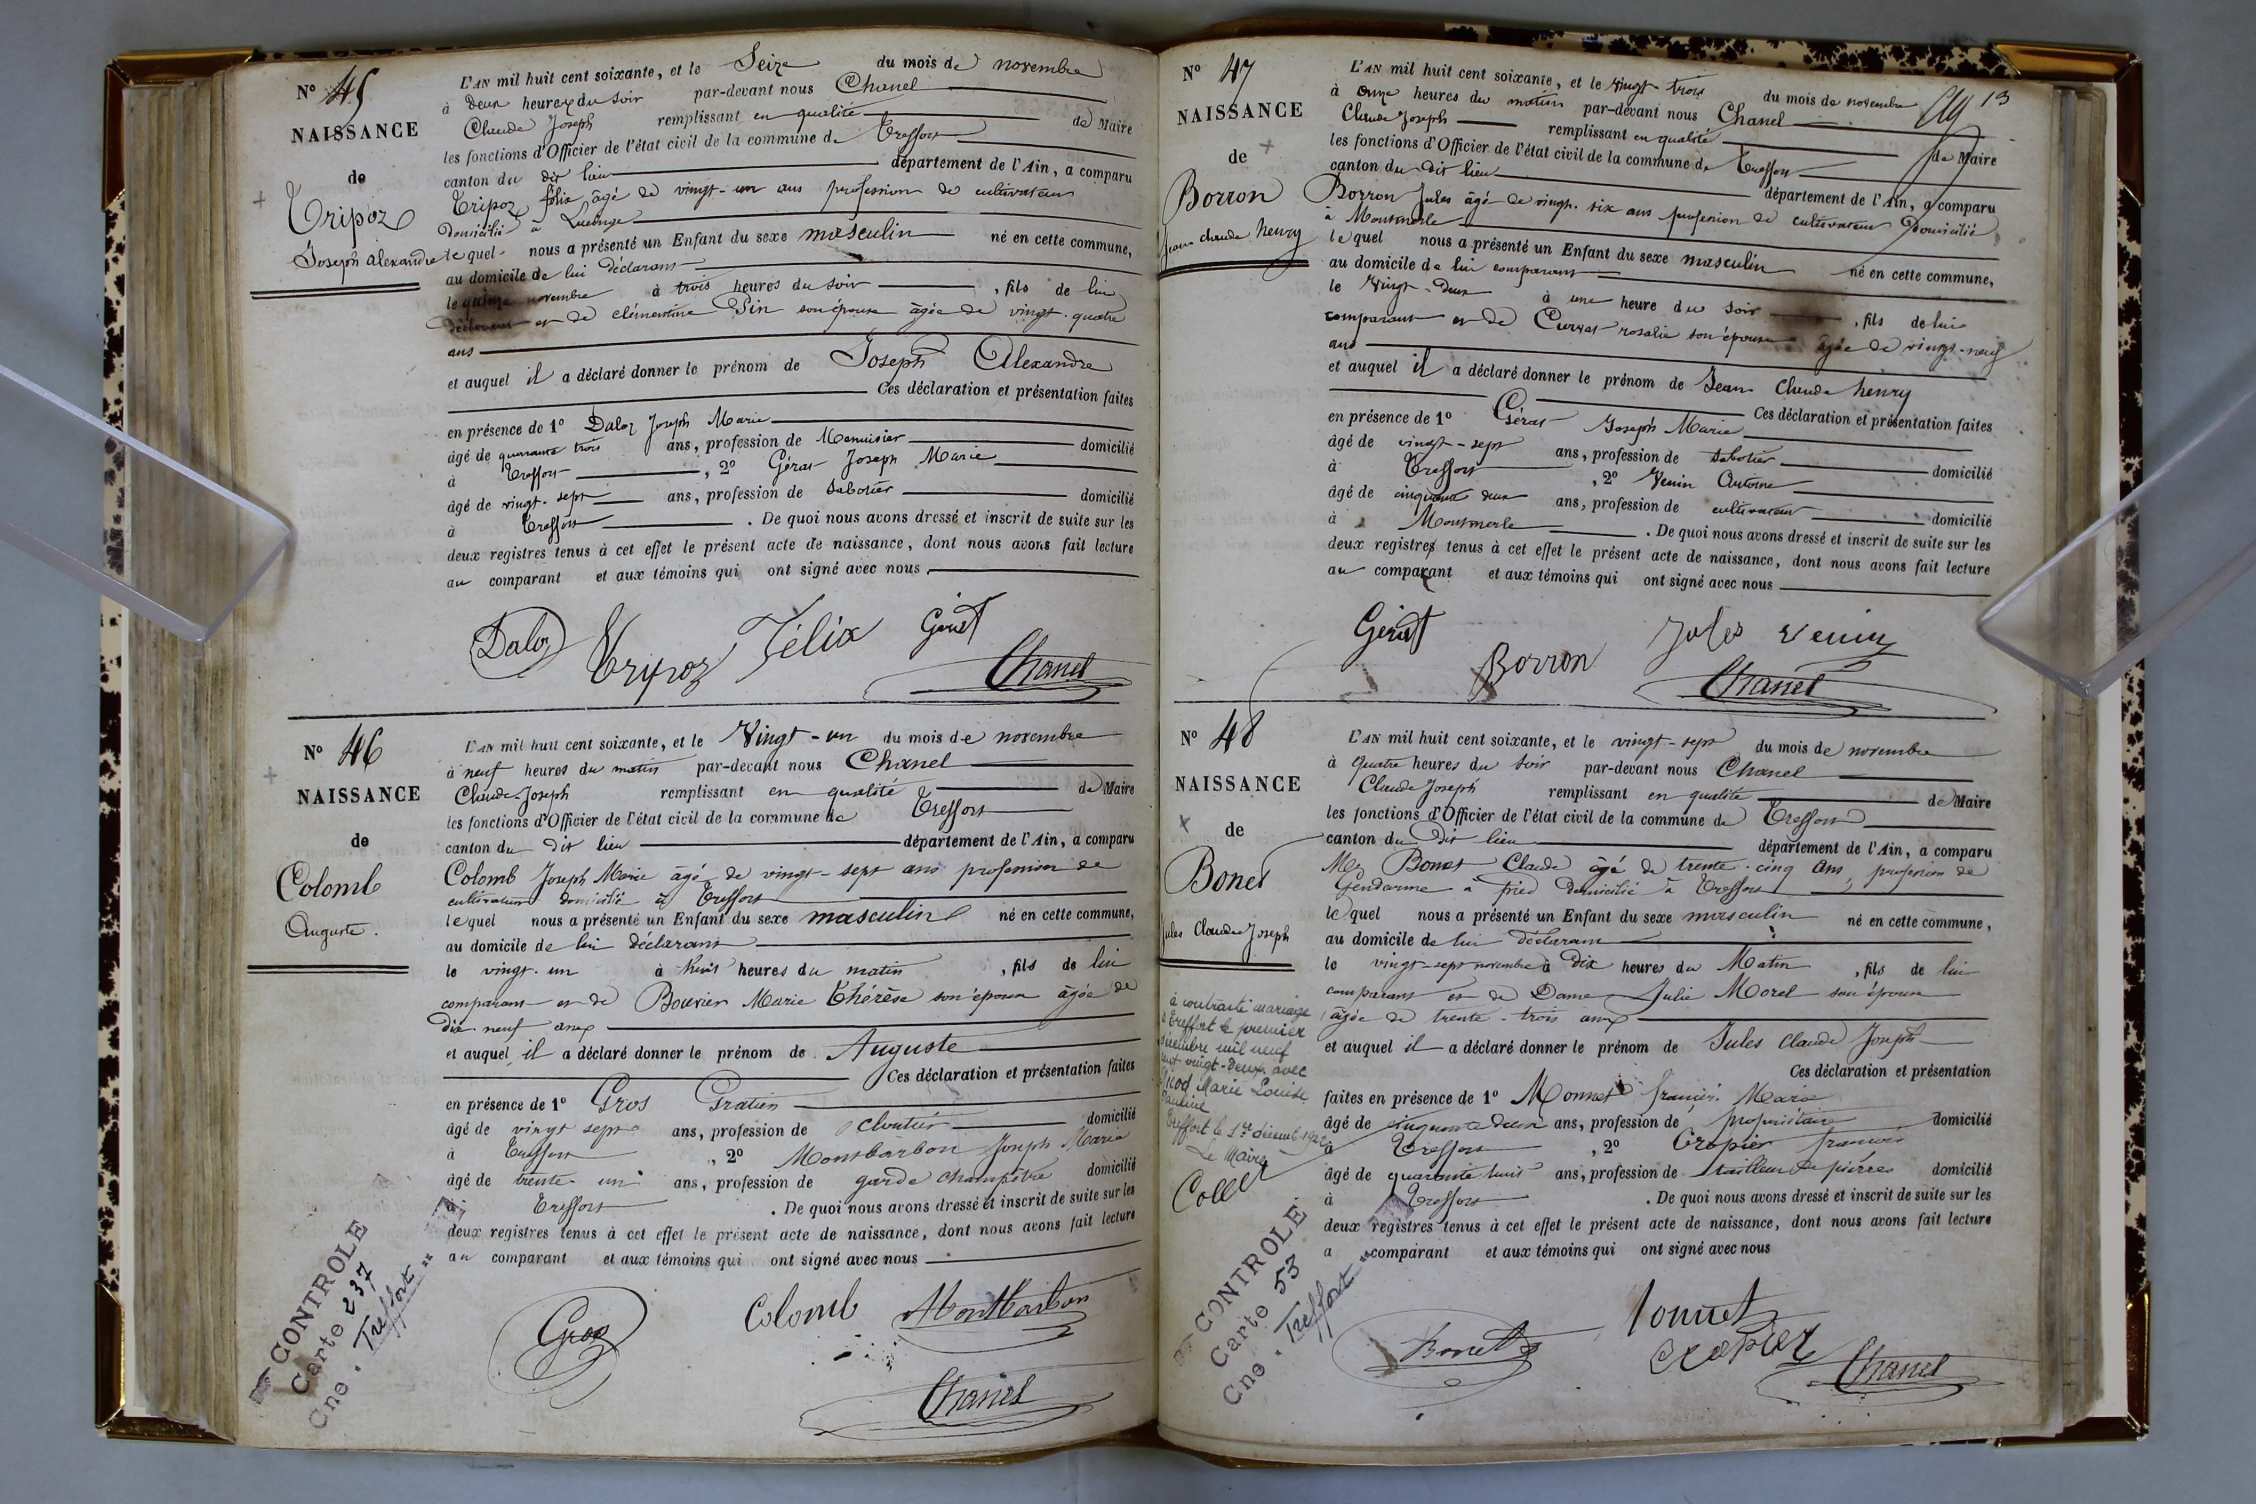 N° 45
NAISSANCE
de
Tripoz
Joseph Alexandre
L'AN mil huit cent soixante, et le Seize du mois de novembre
à deux heures du soir par-devant nous Chanel
Claude Joseph remplissant en qualité de Maire
les fonctions d'Officier de l'état civil de la commune de Treffort
canton du dit lieu département de l'Ain, a comparu
Tripoz félix âgé de vingt-un ans profession de cultivateur
domicilié à Lucinge
lequel nous a présenté un Enfant du sexe masculin né en cette commune,
au domicile de lui déclarant
le quinze novembre à trois heures du soir, fils de lui
déclarant et de clémentine Pin son épouse âgée de vingt-quatre
ans
et auquel il a déclaré donner le prénom de Joseph Alexandre
Ces déclaration et présentation faites
en présence de 1° Daloz Joseph Marie
âgé de quarante trois ans, profession de Menuisier domicilié
à Treffort, 2° Gérat Joseph Marie
âgé de vingt-sept ans, profession de sabotier domicilié
à Treffort. De quoi nous avons dressé et inscrit de suite sur les
deux registres tenus à cet effet le présent acte de naissance, dont nous avons fait lecture
au comparant et aux témoins qui ont signé avec nous.
Daloz Trypoz Félix Gérat
Chanel
N° 46
NAISSANCE
de
Colomb
Auguste.
L'AN mil huit cent soixante, et le Vingt-un du mois de novembre
à neuf heures du matin par-devant nous Chanel
Claude-Joseph remplissant en qualité de Maire
les fonctions d'Officier de l'état civil de la commune de Treffort
canton du dit lieu département de l'Ain, a comparu
Colomb Joseph Marie âgé de vingt-sept ans profession de
cultivateur domicilié à Treffort
lequel nous a présenté un Enfant du sexe masculin né en cette commune,
au domicile de lui déclarant
le vingt-un à huit heures du matin, fils de lui
comparant et de Bouvier Marie Thérèse son épouse âgée de
dix-neuf ans
et auquel il a déclaré donner le prénom de Auguste
Ces déclaration et présentation faites
en présence de 1° Gros Gratien
âgé de vingt sept ans, profession de cloutier domicilié
à Treffort, 2° Montbarbon Joseph Marie
âgé de trente-un ans, profession de garde champêtre domicilié
à Treffort. De quoi nous avons dressé et inscrit de suite sur les
deux registres tenus à cet effet le présent acte de naissance, dont nous avons fait lecture
au comparant et aux témoins qui ont signé avec nous
Gros Colomb Montbarbon
Chanel
CONTROLE
Carte 237
Cne. Treffort
N° 47
NAISSANCE
de
Borron
Jean claude henry
13
L'AN mil huit cent soixante, et le Vingt trois du mois de novembre
à onze heures du matin par-devant nous Chanel
Claude Joseph remplissant en qualité de Maire
les fonctions d'Officier de l'état civil de la commune de Treffort
canton du dit lieu département de l'Ain, a comparu
Borron Jules âgé de vingt-six ans profession de cultivateur domicilié
à Montmerle
lequel nous a présenté un Enfant du sexe masculin né en cette commune,
au domicile de lui comparant
le Vingt-deux à une heure du soir, fils de lui
comparant et de rosalie son épouse âgée de vingt-neuf
ans
et auquel il a déclaré donner le prénom de Jean Claude henry
Ces déclaration et présentation faites
en présence de 1° Gérat Joseph Marie
âgé de vingt-sept ans, profession de sabotier domicilié
à Treffort, 2° Venin Antoine
âgé de cinquante deux ans, profession de cultivateur domicilié
à Montmerle. De quoi nous avons dressé et inscrit de suite sur les
deux registres tenus à cet effet le présent acte de naissance, dont nous avons fait lecture
au comparant et aux témoins qui ont signé avec nous
Gérat Borron Jules Venin
Chanel
N° 48
NAISSANCE
de
Bonet
Jules Claude Joseph
à contracté mariage
à Treffort le premier
décembre mil neuf
cent vingt-deux avec
Nicod Marie Louise
Pauline
Treffort le 1er décemb. 1922
Le Maire
Collet
L'AN mil huit cent soixante, et le vingt-sept du mois de novembre
à quatre heures du soir par-devant nous Chanel
Claude Joseph remplissant en qualité de Maire
les fonctions d'Officier de l'état civil de la commune de Treffort
canton du dit lieu département de l'Ain, a comparu
Mr Bonet Claude âgé de trente-cinq ans, profession de
Gendarme à pied domicilié à Treffort
lequel nous a présenté un Enfant du sexe masculin né en cette commune,
au domicile de lui déclarant
le vingt-sept novembre à Dix heures du Matin, fils de lui
comparant et de Dame Julie Morel son épouse
âgée de trente-trois ans
et auquel il a déclaré donner le prénom de Jules Claude Joseph
Ces déclaration et présentation
faites en présence de 1° Monnet françois Marie
âgé de cinquante deux ans, profession de propriétaire domicilié
à Treffort, 2° Cropier francois
âgé de quarante huit ans, profession de tailleur de pierres domicilié
à Treffort. De quoi nous avons dressé et inscrit de suite sur les
deux registres tenus à cet effet le présent acte de naissance, dont nous avons fait lecture
a comparant et aux témoins qui ont signé avec nous
Bonet Monnet
Cropier
Chanel
CONTROLE
Carte 53
Cne. Treffort